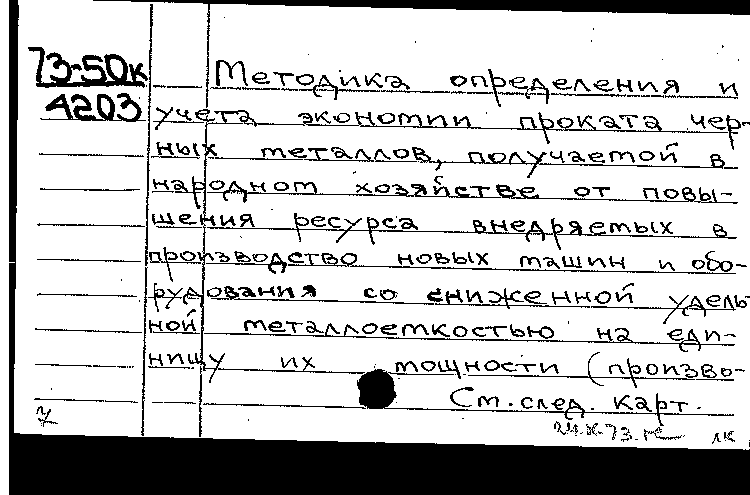 73-50к
4203
Методика определения и
учета экономии проката чер-
ных металлов, получаемой в
народном хозяйстве от повы-
шения ресурса внедряемых в
производство новых машин и обо-
рудования со сниженной удель
ной металлоемкостью на еди-
ницу их мощности (произво-
См. след. карт.
24.X-73.
лк